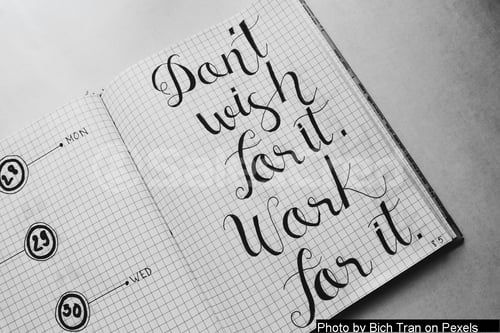 28
MON
29
WED
30
Don't
wish
for it.
Work
for it.
Photo by Bich Tran on Pexels